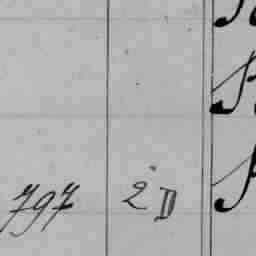 797 2 D